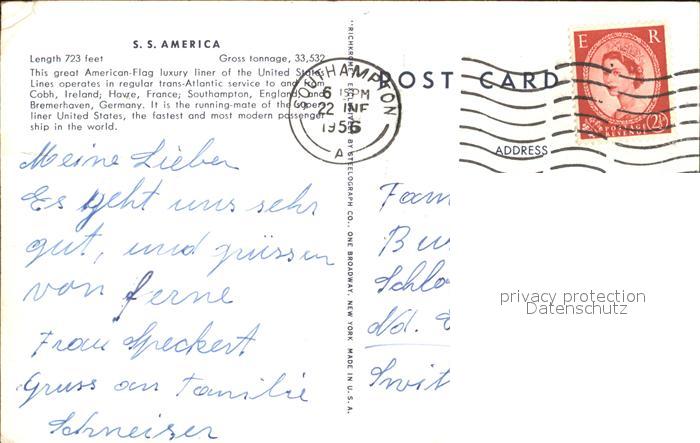 S. S. AMERICA
Length 723 feet Gross tonnage, 33,532
This great American-Flag luxury liner of the United States
Lines operates in regular trans-Atlantic service to and from
Cobh, Ireland; Havre, France; Southampton, England and
Bremerhaven, Germany. It is the running-mate of the super-
liner United States, the fastest and most modern passenger
ship in the world.
Meine Lieben
Es geht uns sehr
gut, und grüssen
von ferne
Frau Speckert
Gruss an Familie
Schneiser
BY STEELOGRAPH CO., ONE BROADWAY, NEW YORK MADE IN U. S. A.
SOUTHAMPTON
6 15 PM
22
1956
A
POST CARD
E R
POSTAGE
REVENUE
2½
ADDRESS
Fam
Bu
Schlo
Nd.
Swit
privacy protection
Datenschutz